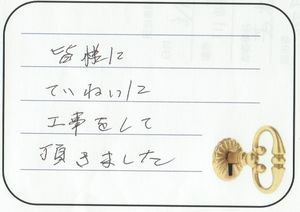 皆様に
ていねいに
工事をして
頂きました